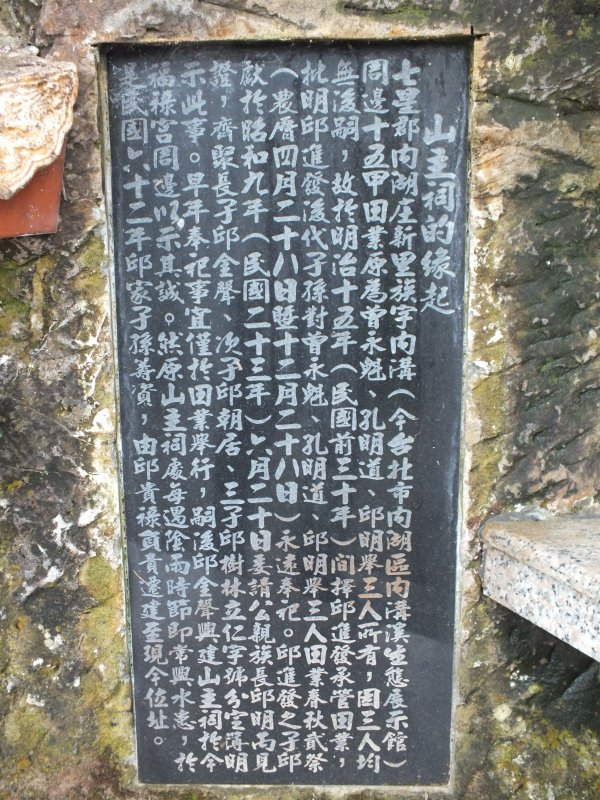 山主祠的緣起
七星郡內湖庄新里族字內溝（今台北市內湖區內溝溪生態展示館）
周邊十五甲田業原為曾永魁、孔明道、邱明舉三人所有，因三人均
無後嗣，故於明治十五年（民國前三十年）間擇邱進發承管田業，
批明邱進發後代子孫對曾永魁　孔明道　邱明舉三人田業春秋貳祭
（農曆四月二十八日暨十二月二十八日）永遠奉祀。邱進發之子邱
獻於昭和九年（民國二十三年）六月二十日委請公親族長邱明両見
證，齊聚長子邱金聲、次子邱朝居、三子邱樹林立仁字號分字簿明
示此事。早年奉祀事宜僅於田業舉行，嗣後邱金聲興建山主祠於今
福祿宮周邊以示其誠。然原山主祠處每遇陰雨時節即常興水患，於
是民國六十二年邱家子孫壽資，由邱貴祿負責遷建至現今位址。